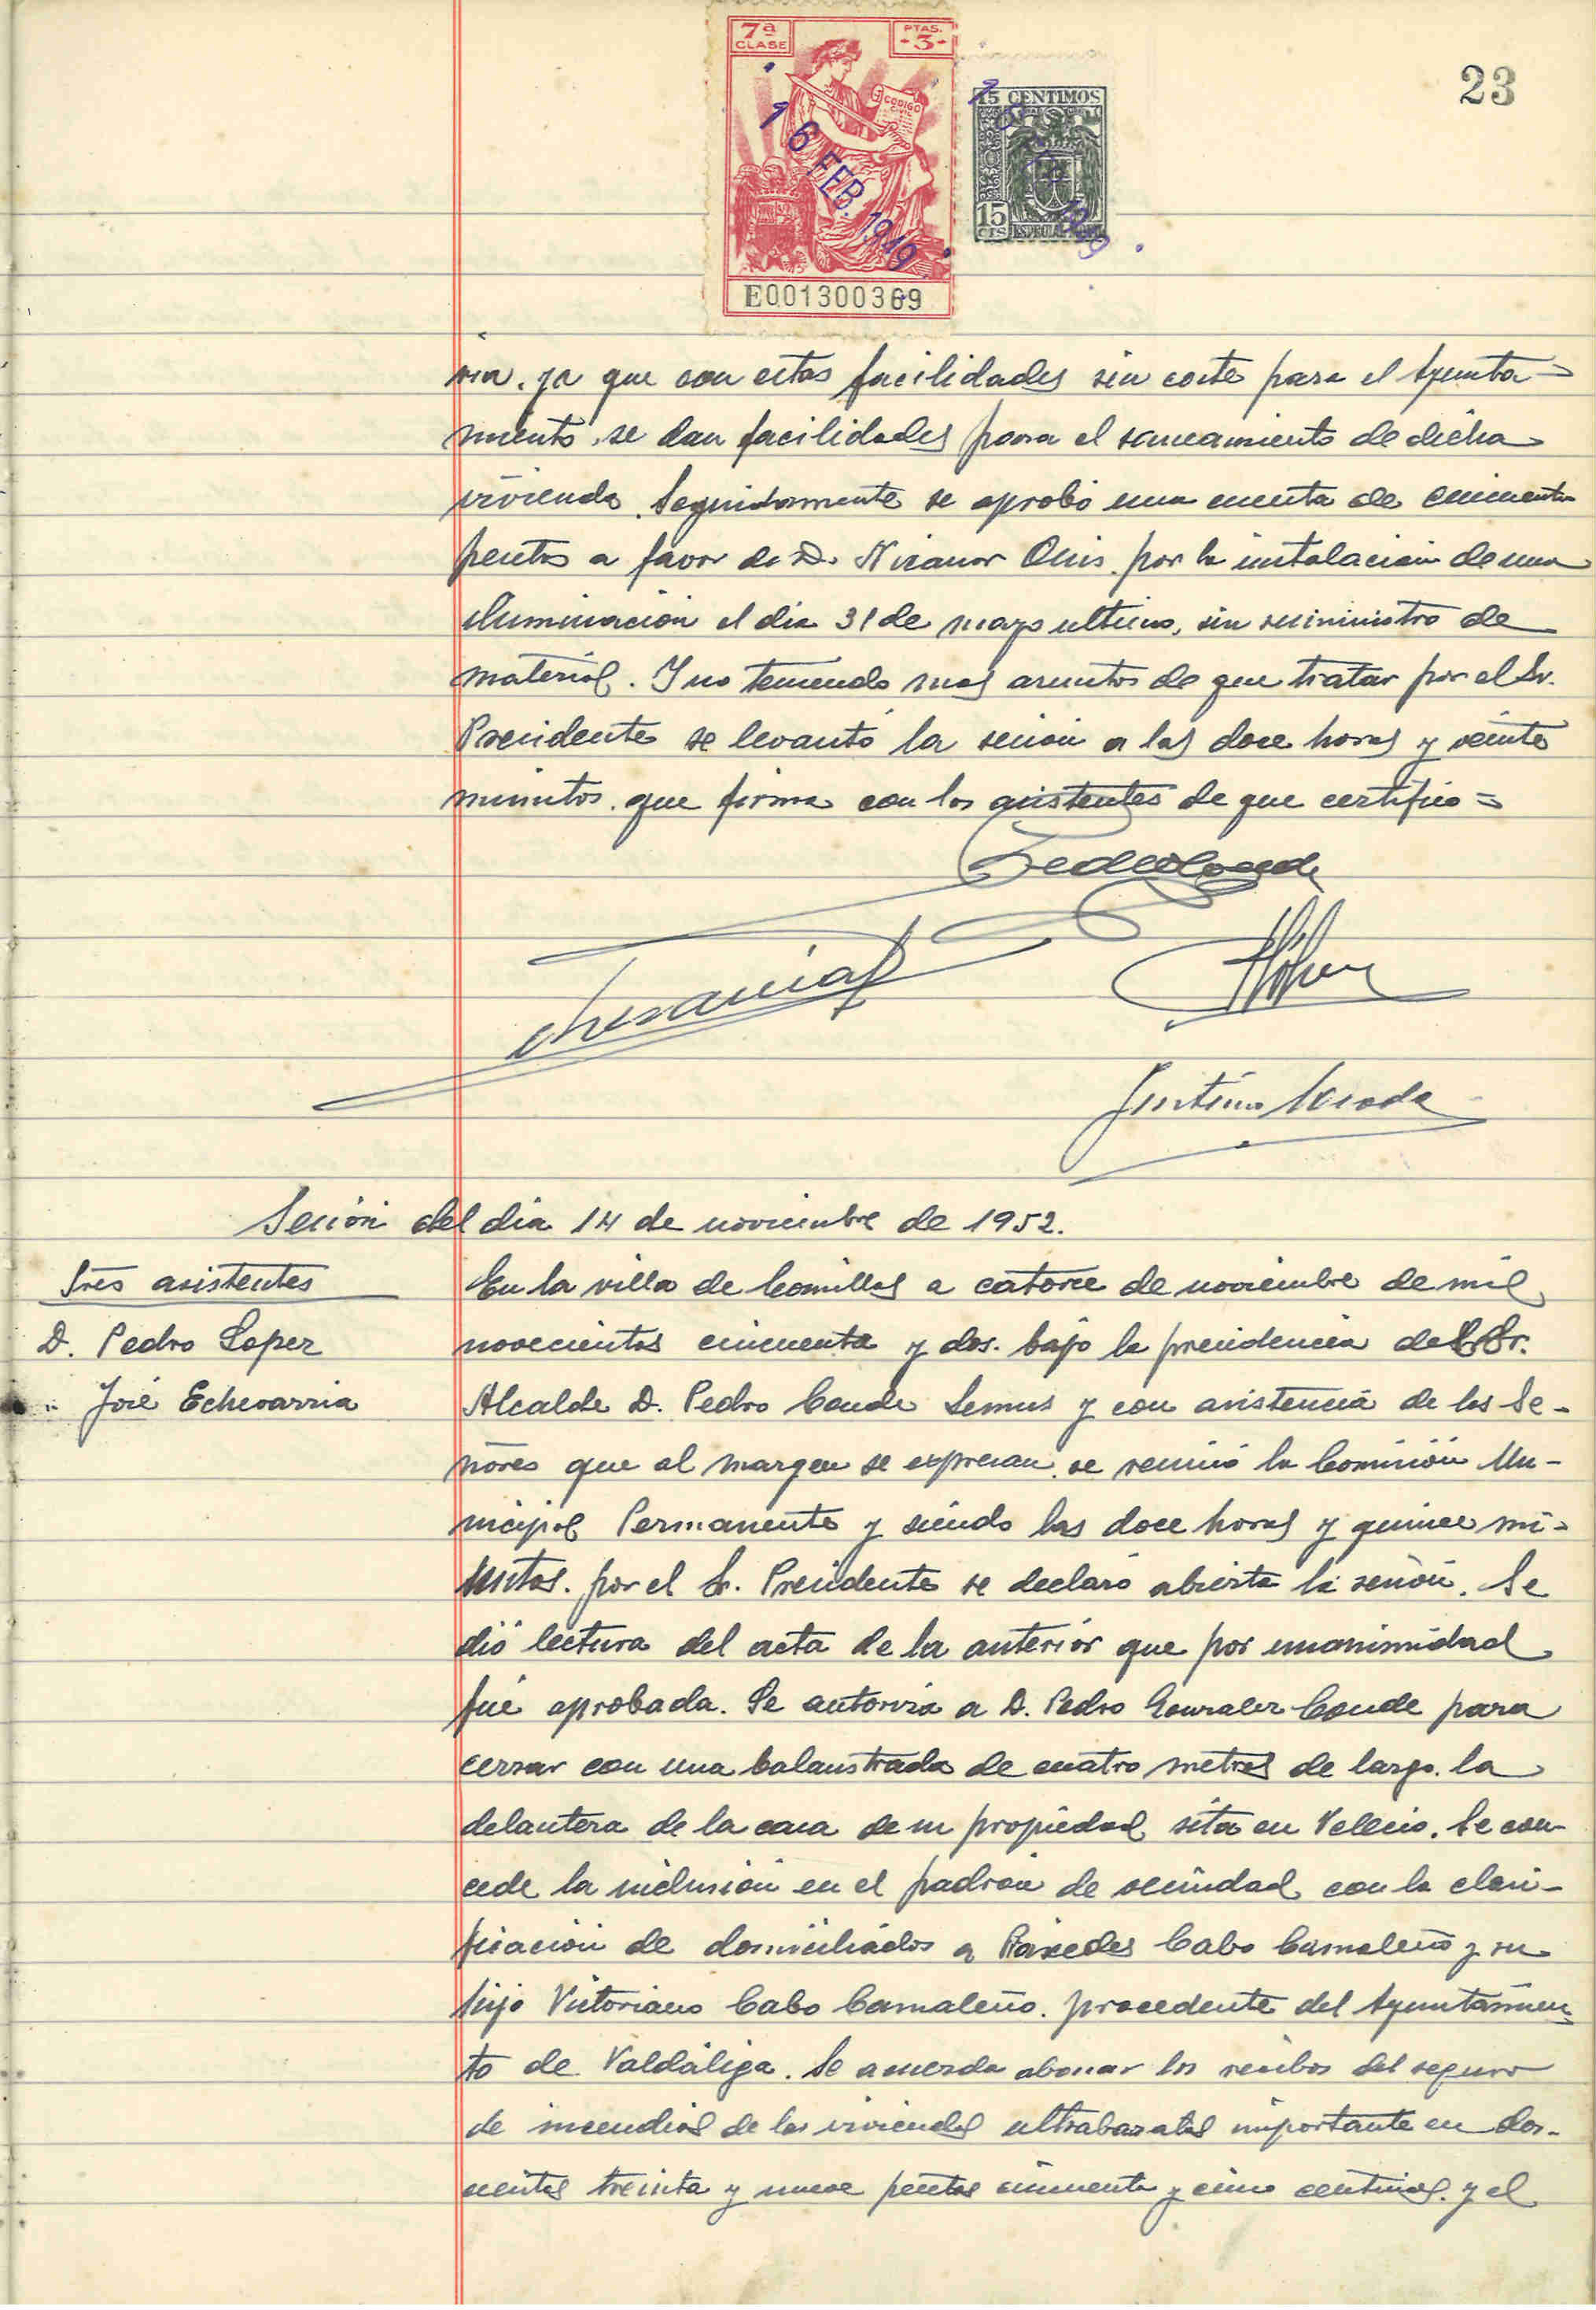 7ª
CLASE
PTAS.
-3-
CODIGO
CIVIL
16 FEB. 1949
E001300369
15 CENTIMOS
15
CTS
ESPECIAL MOVIL
1949
23
ria, ya que con estas facilidades sin coste para el Ayunta-
miento, se dan facilidades para el saneamiento de dicha
vivienda. Seguidamente se aprobó una cuenta de cincuenta
pesetas a favor de D. Nicanor por la instalación de una
iluminación el dia 31 de mayo ultimo, sin suministro de
material. Y no teniendo mas asuntos de que tratar por el Sr.
Presidente se levantó la sesion a las doce horas y veinte
minutos, que firma con los asistentes de que certifico =
Sesión del dia 14 de noviembre de 1952.
Sres asistentes
D. Pedro Lopez
" José Echevarria
En la villa de Comillas a catorce de noviembre de mil
novecientos cincuenta y dos, bajo la presidencia del Sr.
Alcalde D. Pedro Conde Lemus y con asistencia de los Se-
ñores que al margen se expresan, se reunió la Comisión Mu-
nicipal Permanente y siendo las doce horas y quince mi-
nutos, por el Sr. Presidente se declaró abierta la sesión. Se
dió lectura del acta de la anterior que por unanimidad
fué aprobada. Se autoriza a D. Pedro Gonzalez Conde para
cerrar con una balaustrada de cuatro metros de largo, la
delantera de la casa de su propiedad sita en Velecio. Se con-
cede la inclusión en el padrón de vecindad con la clasi-
ficación de domiciliados a Práxedes Cabo Camaleño y su
hijo Victoriano Cabo Camaleño, procedente del Ayuntamien-
to de Valdáliga. Se acuerda abonar los recibos del seguro
de incendios de las viviendas ultrabaratas importante en dos-
cientas treinta y nueve pesetas cincuenta y cinco centimos, y el